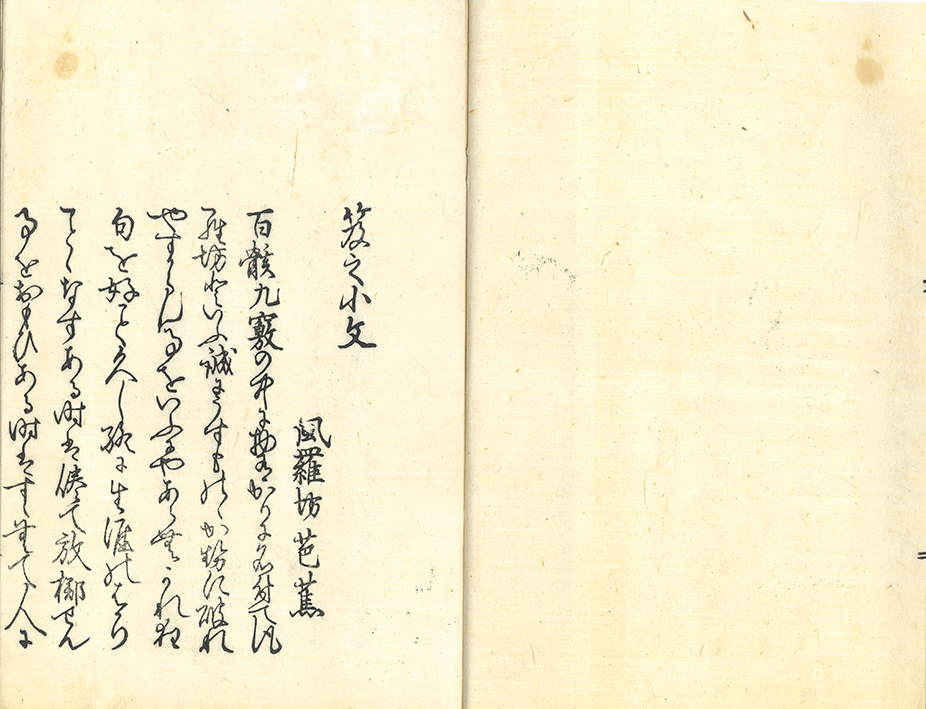 笈之小文
風羅坊芭蕉
百骸九竅の中に物有かりに名付て風
羅坊といふ誠にうすものゝかせに破れ
やすからん事をいふにやあらむかれ狂
句を好こと久し終に生涯のはかり
ことゝなすある時は倦て放擲せん
事をおもひある時はすゝむて人に